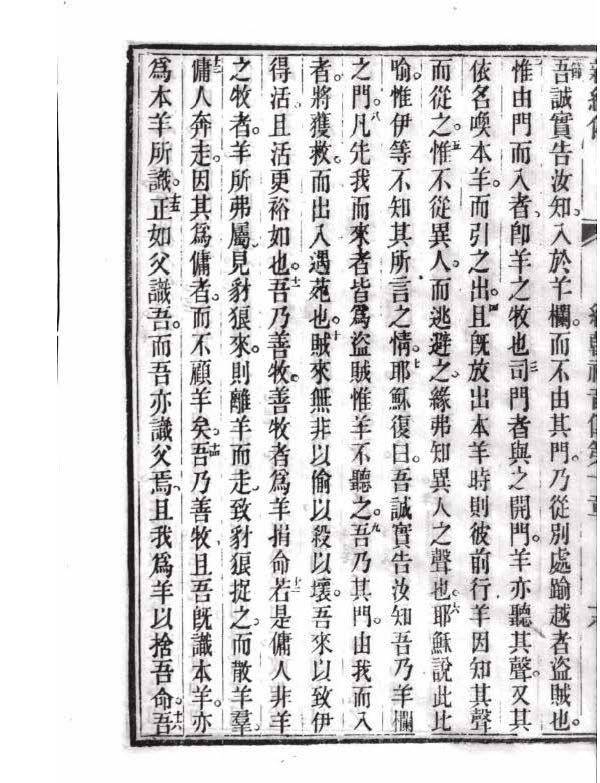 吾誠實告汝知入於羊欄。而不由其門。乃從別處踰越者盜賊也。
惟由門而入者、卽羊之牧也三司門者與之開門。羊亦聽其聲。又其
依名喚本羊。而引之出。四且旣放出本羊時則彼前行羊因知其聲
而從之。五惟不從異人。而逃避之、緣弗知異人之聲也。六耶穌說此比
喻。惟伊等不知其所言之情。七耶穌復曰。吾誠實告汝知吾乃羊欄
之門。八凡先我而來者皆爲盜賊惟羊不聽之。九吾乃其門。由我而入
者將獲救。而出入遇苑也。十賊來無非以偷以殺以壞。吾來以致伊
得活且活更裕如也。十一吾乃善牧。善牧者爲羊捐命。十二若是傭人非羊
之牧者。羊所弗屬見豺狼來。則離羊而走、致豺狼捉之。而散羊羣。
十三傭人奔走。因其爲傭者。而不顧羊矣。十四吾乃善牧且吾旣識本羊。亦
爲本羊所識。十五正如父識吾。而吾亦識父焉、且我爲羊以捨吾命。十六吾